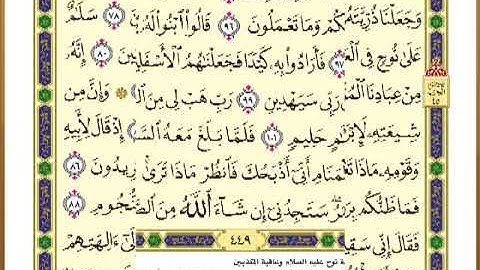 وَجَعَلْنَا ذُرِّيَّتَهُ كُمْ وَمَا تَعْمَلُونَ ﴿٩٦﴾ قَالُوا۟ ٱبْنُوا۟ لَهُۥ ﴿٧٨﴾ سَلَٰمٌ
عَلَىٰ نُوحٍ فِى ٱلْعَ ﴿٩٧﴾ فَأَرَادُوا۟ بِهِۦ كَيْدًا فَجَعَلْنَٰهُمُ ٱلْأَسْفَلِينَ ﴿٨٠﴾ إِنَّهُۥ
مِنْ عِبَادِنَا ٱلْمُ رَبِّى سَيَهْدِينِ ﴿٩٩﴾ رَبِّ هَبْ لِى مِنَ ٱل ۞ وَإِنَّ مِن
شِيعَتِهِۦ لَإِ حَلِيمٍ ﴿١٠١﴾ فَلَمَّا بَلَغَ مَعَهُ ٱلسَّ إِذْ قَالَ لِأَبِيهِ
وَقَوْمِهِۦ مَاذَا تَ مَنَامِ أَنِّىٓ أَذْبَحُكَ فَٱنظُرْ مَاذَا تَرَىٰ رِيدُونَ ﴿٨٦﴾
فَمَا ظَنُّكُم بِرَ سَتَجِدُنِىٓ إِن شَآءَ ٱللَّهُ مِنَ ٱلصَّ نُّجُومِ ﴿٨٨﴾
فَقَالَ إِنِّى سَقِي ٤٤٩ لَىٰٓ ءَالِهَتِهِمْ
ة نوح عليه السلام وعاقبة المكذبين